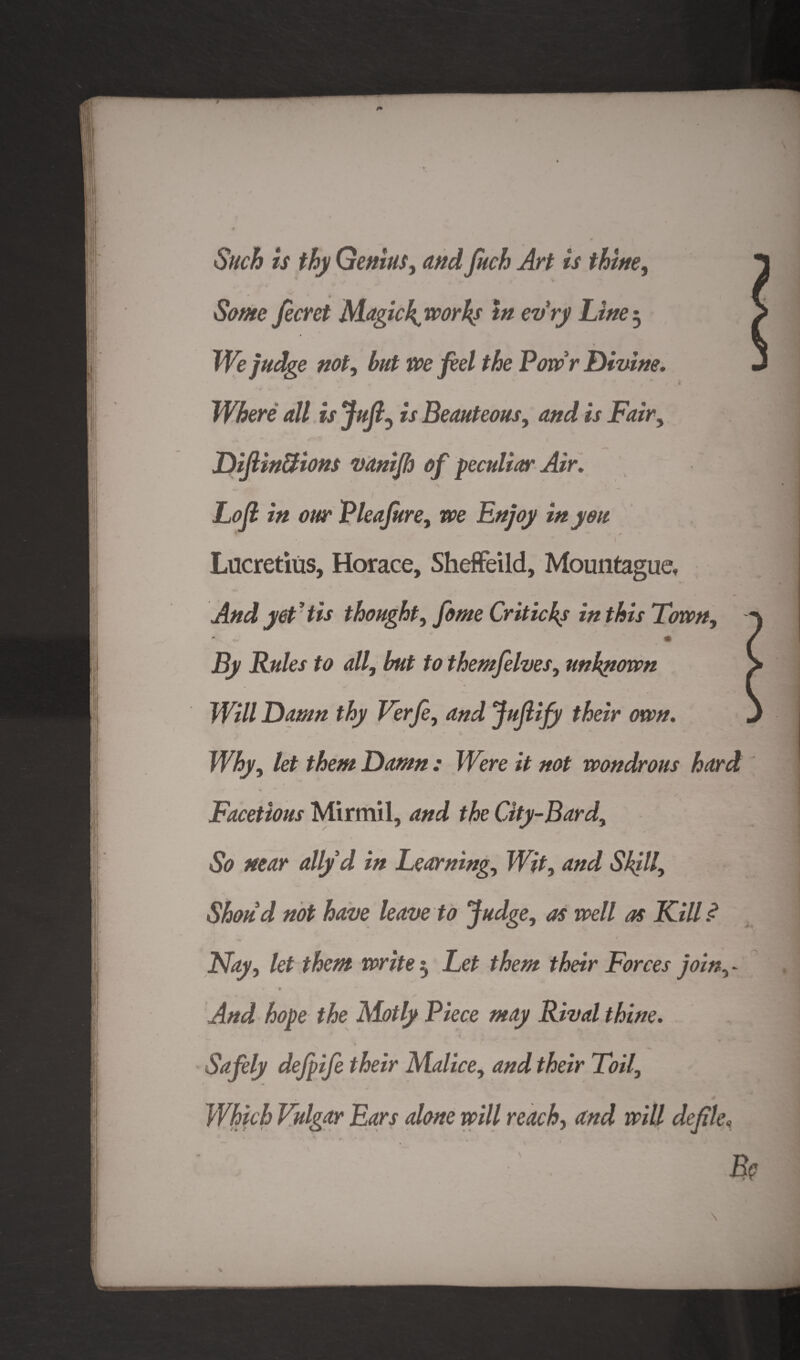 Such is thy Genius, and ſuch Art is thine,
Some ſecret Magick works in ev'ry Line;
We judge not, but we feel the Pow'r Divine.
Where all is Juſt, is Beauteous, and is Fair,
Diſtinctions vaniſh of peculiar Air.
Loſt in our Pleaſure, we Enjoy in you
Lucretius, Horace, Sheffeild, Mountague,
And yet 'tis thought, ſome Criticks in this Town,
By Rules to all, but to themſelves, unknown
Will Damn thy Verſe, and Juſtify their own.
Why, let them Damn: Were it not wondrous hard
Facetious Mirmil, and the City-Bard,
So near ally'd in Learning, Wit, and Skill,
Shou'd not have leave to Judge, as well as Kill?
Nay, let them write; Let them their Forces join,
And hope the Motly Piece may Rival thine.
Safely deſpiſe their Malice, and their Toil,
Which Vulgar Ears alone will reach, and will defile.
Be